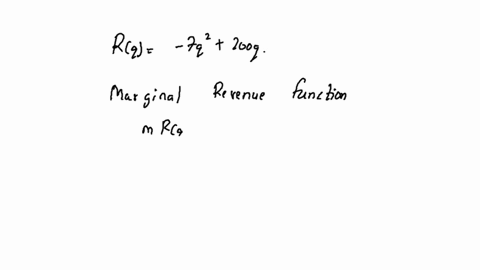 R(q) = -7q² + 200q.
Marginal Revenue function
m R(q